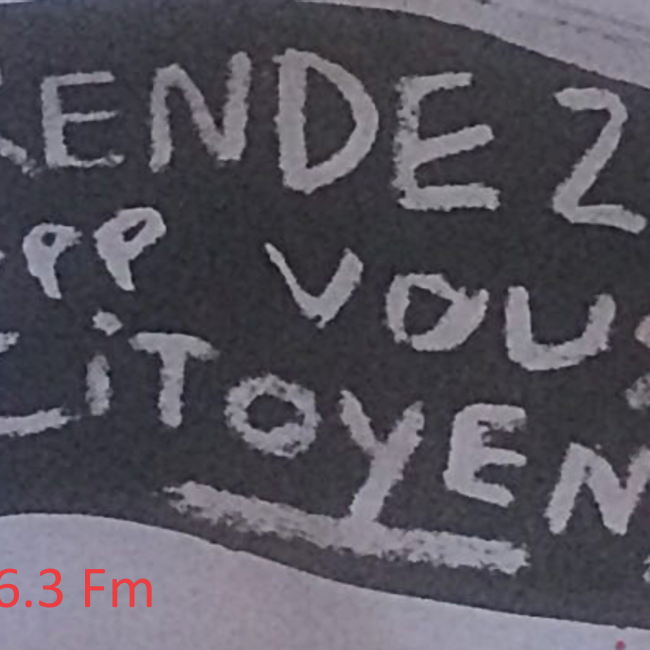 RENDEZ
PP VOUS
CiTOYEN
6.3 Fm